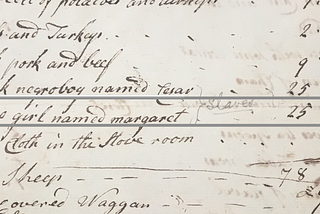 of potatoes and turnips 
s and Turkeys . . . 2
pork and beef . . . 9
k negroboy named Cesar 25
girl named margaret 25
Slaves
Cloth in the Stove room . . .
Sheep - - - 78
covered Waggan - - -